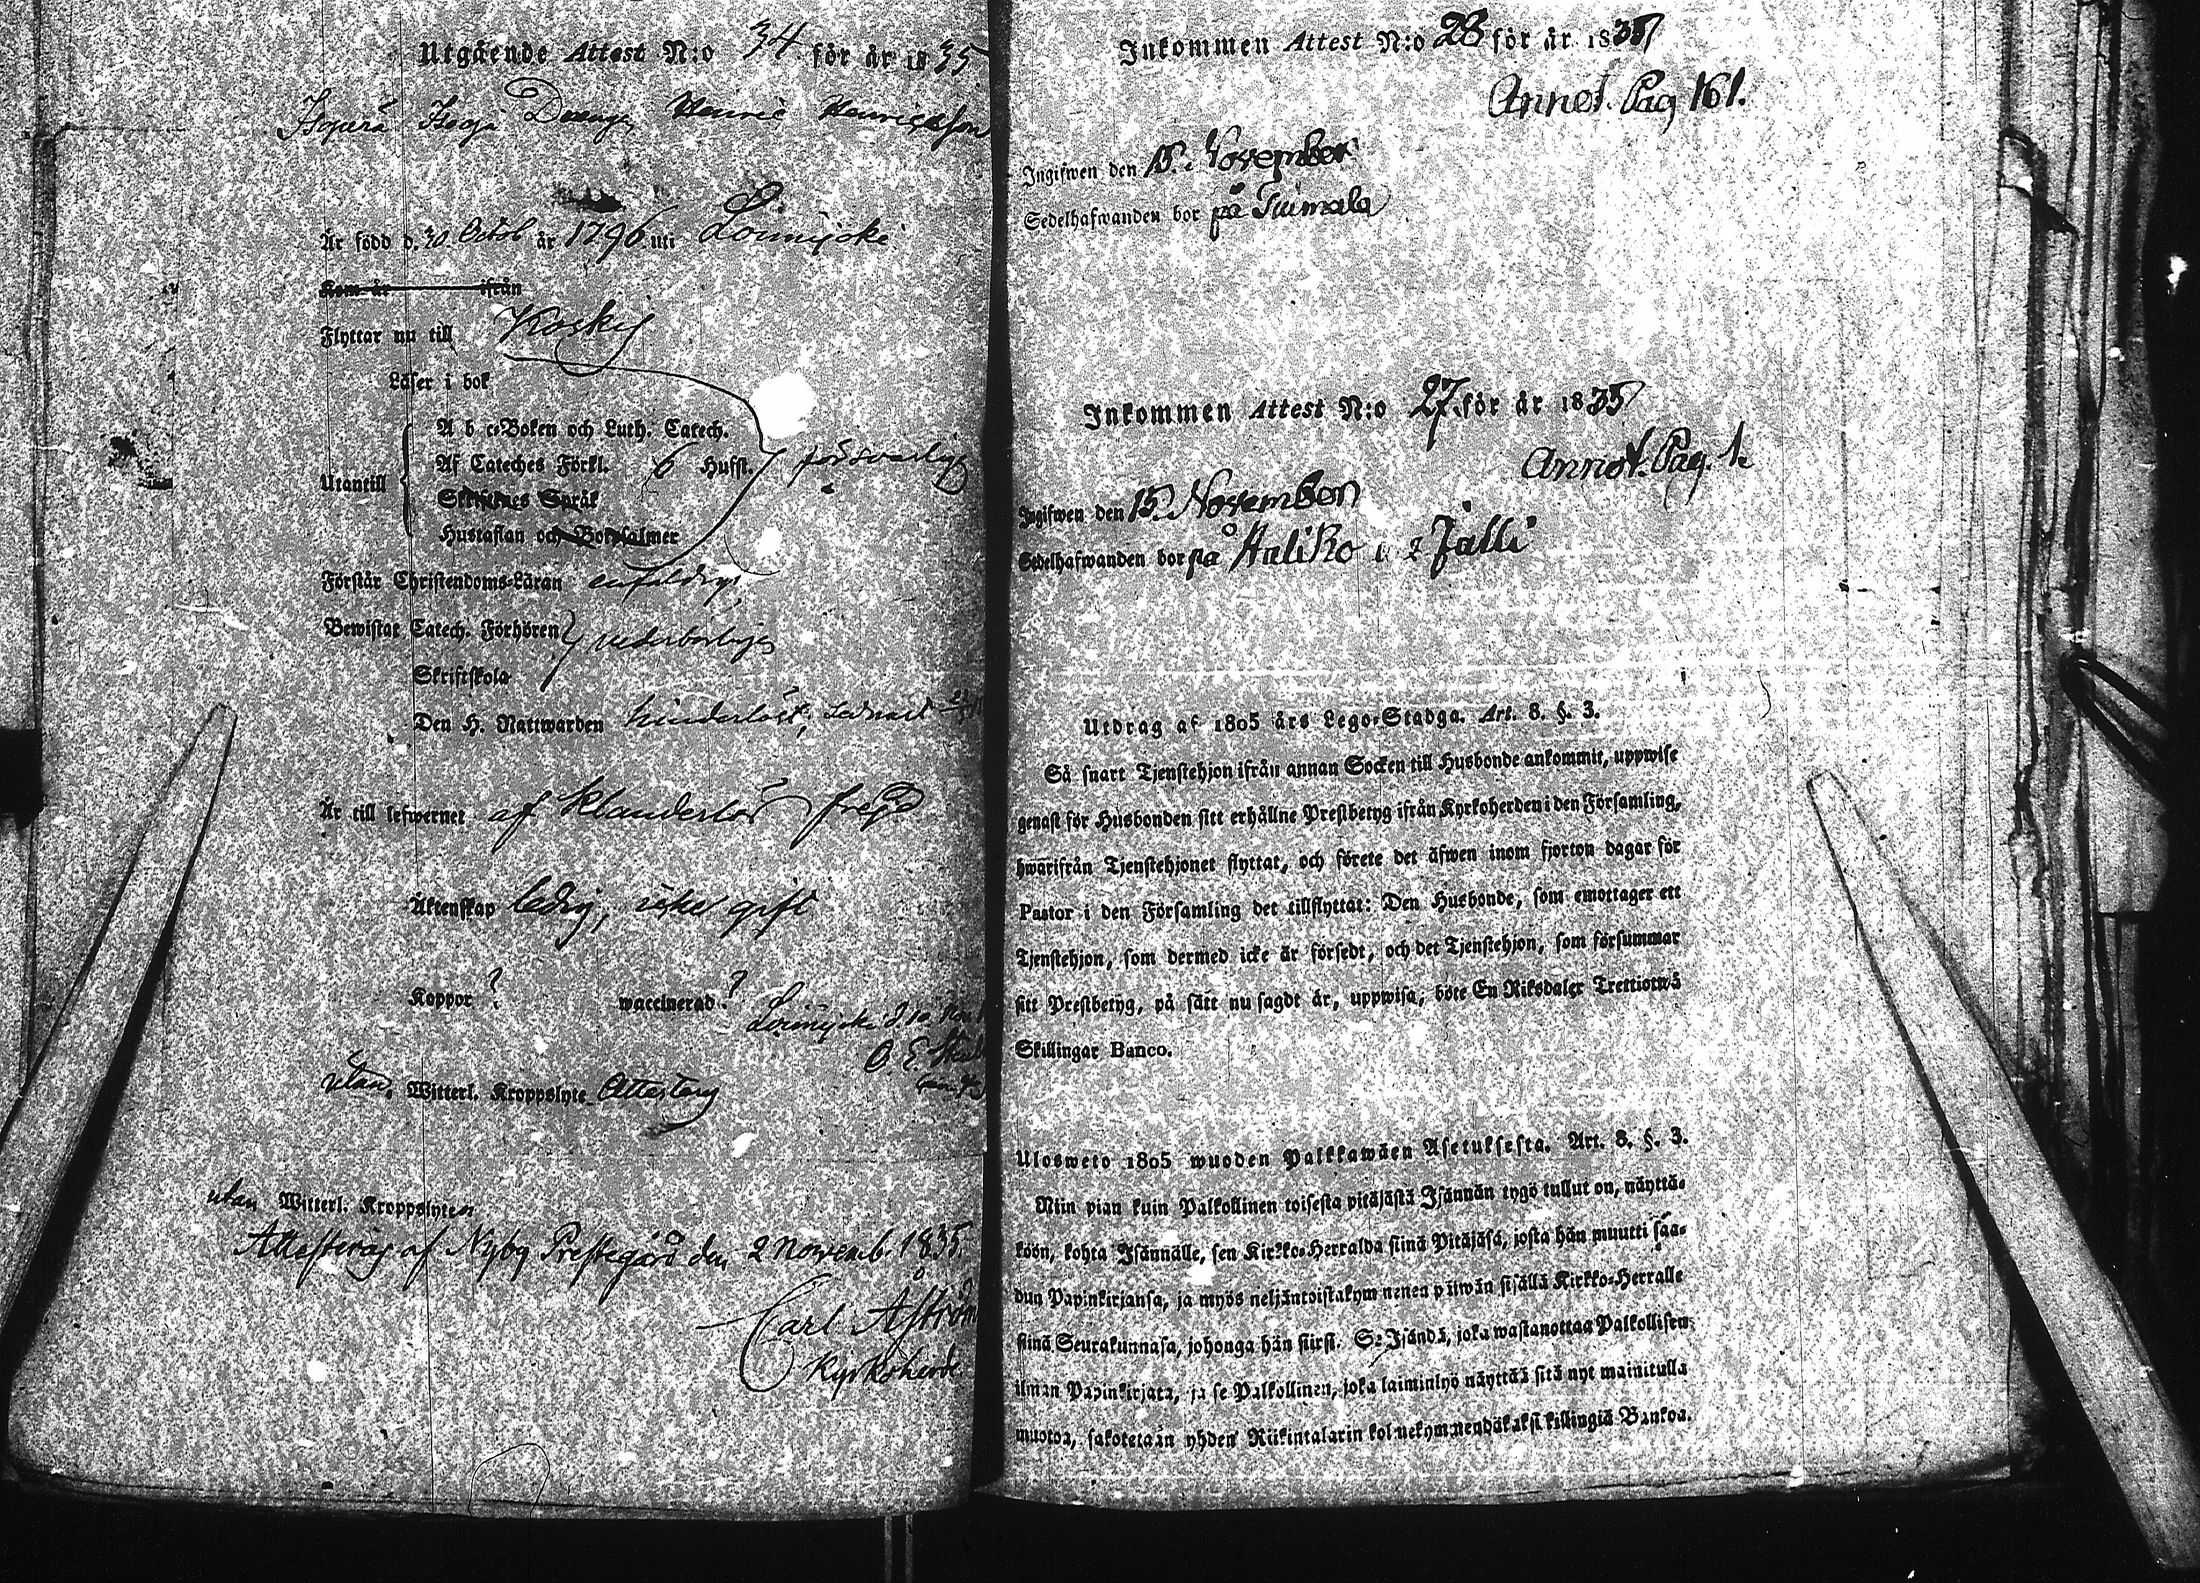 Utgående Attest N:o 34 för år 1835
Drengen Henric Henricsson
Är född d. 30 Octob år 1796 uti Loimijoki
Kom år ifrån
Flyttar nu till Koskis
Läser i bok
A b c-Boken och Luth. Catech.
Af Cateches Förkl. 6 Hufst. försvarligt
Utantill
Skriftenes Språk
Hustaflan och Botpsalmer
Förstår Christendoms-Läran enfaldigt
Bewistat Catech. Förhören vederbörligen
Skriftskola
Den H. Nattwarden hinderlöst, sednast
Är till lefwernet af klanderlös frejd
Äktenskap ledig, icke gift
Koppor? waccinerad?
Loimijoki d. 10
utan Witterl. Kroppslyte Attesterar
utan Witterl. Kroppslyten
Attesteras af Nyby Prestegård den 2 Novemb. 1835.
Carl Åström
Kyrkoherde
Inkommen Attest N:o 28 för år 1835
Annot. Pag 161.
Ingifwen den 15. November
Sedelhafwanden bor på Tuimala
Inkommen Attest N:o 27 för år 1835
Annot. Pag. 1.
Ingifwen den 15. November
Sedelhafwanden bor på Haliko Jälli
Utdrag af 1805 års Lego-Stadga. Art. 8. §. 3.
Så snart Tjenstehjon ifrån annan Socken till Husbonde ankommit, uppwise
genast för Husbonden sitt erhållne Prestbetyg ifrån Kyrkoherden i den Församling,
hwarifrån Tjenstehjonet flyttat, och förete det äfwen inom fjorton dagar för
Pastor i den Församling det tillflyttat: Den Husbonde, som emottager ett
Tjenstehjon, som dermed icke är försedt, och det Tjenstehjon, som försummar
sitt Prestbetyg, på sätt nu sagdt är, uppwisa, böte En Riksdaler Trettiotwå
Skillingar Banco.
Ulosweto 1805 wuoden Palkkawäen Asetuksesta. Art. 8. §. 3.
Niin pian kuin Palkollinen toisesta pitäjästä Isännän tygö tullut on, näyttä-
köön, kohta Isännälle, sen Kirkko-Herralda siinä Pitäjäsä, josta hän muutti saa-
dun Papinkirjansa, ja myös neljäntoistakymmenen päiwän sisällä Kirkko-Herralle
siinä Seurakunnasa, johonga hän siirsi. Se Isändä, joka wastanottaa Palkollisen,
ilman Papinkirjata, ja se Palkollinen, joka laiminlyö näyttää sitä nyt mainitulla
muotoa, sakotetaan yhden Riikintalarin kolmekymmendäkaksi killingiä Bankoa.